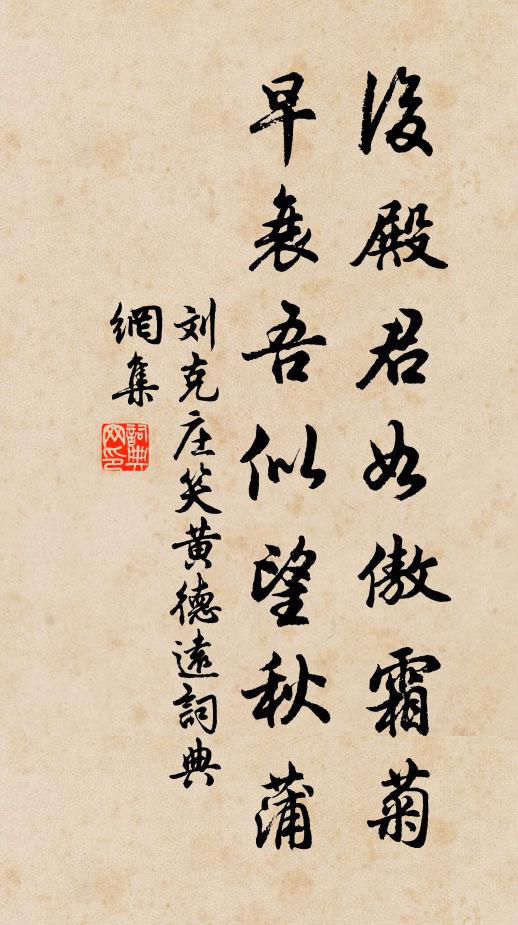 後殿君如傲霜菊
早衰吾似望秋蒲
刘克庄笑黄德远詞典
網集
詞典網印